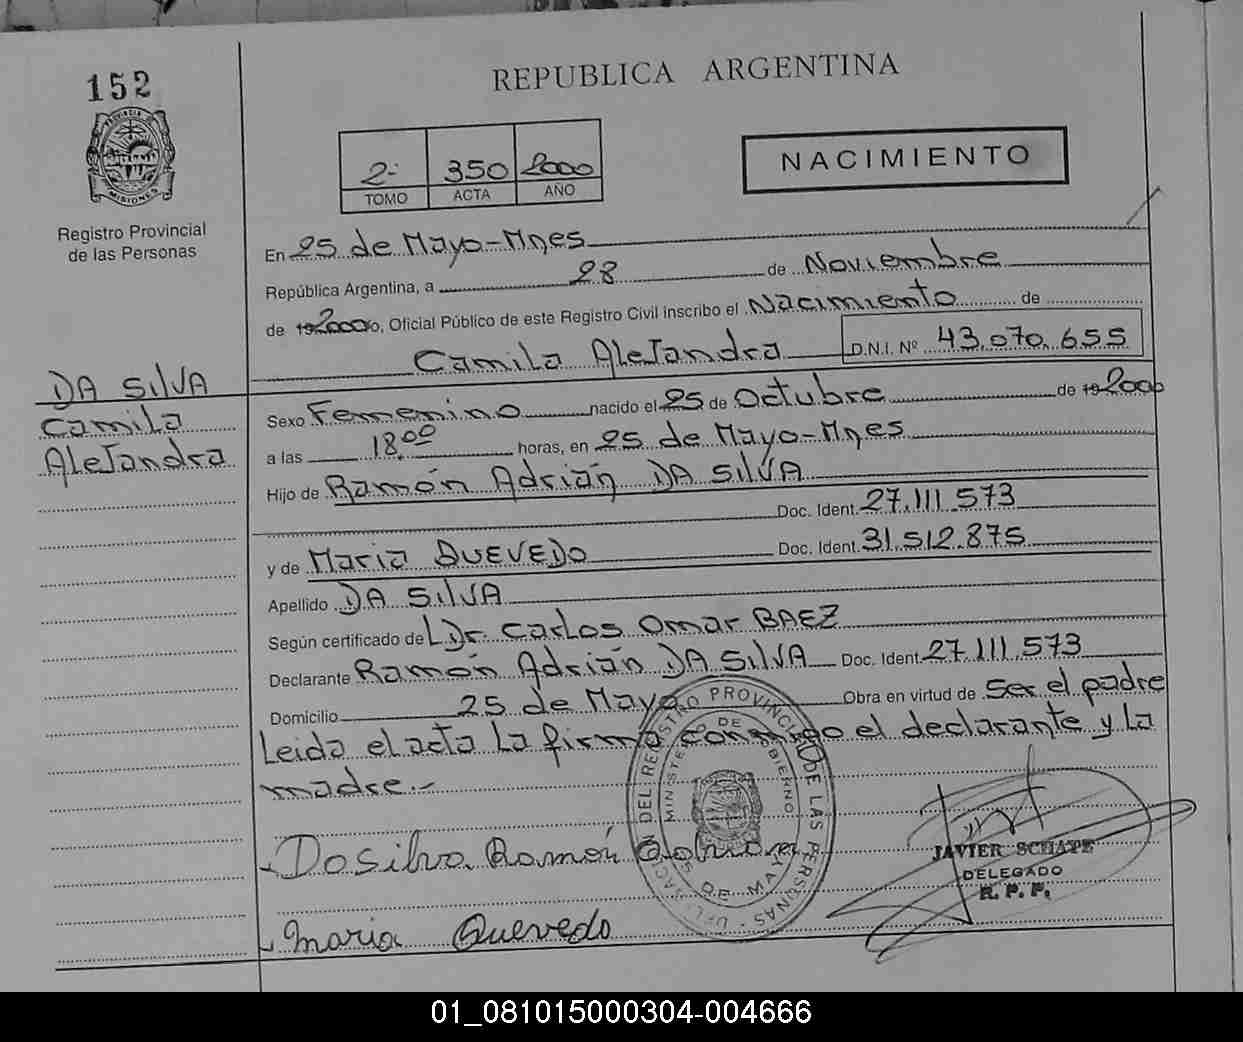 152
REPUBLICA ARGENTINA
PROVINCIA DE MISIONES
Registro Provincial
de las Personas
2- 350 2000
TOMO ACTA AÑO
NACIMIENTO
En 25 de Mayo-Mnes
República Argentina, a 28 de Noviembre
de 2000 yo, Oficial Público de este Registro Civil inscribo el Nacimiento de
Camila AleJandra D.N.I. Nº 43.070.655
DA SilVA
Camila
AleJandra
Sexo Femenino nacido el 25 de Octubre de 2000
a las 18.00 horas, en 25 de Mayo-Mnes
Hijo de Ramón Adrián DA SilVA
Doc. Ident. 27.111.573
y de Maria QUEVEDO Doc. Ident. 31.512.875
Apellido DA SilVA
Según certificado de Dr. Carlos Omar BAEZ
Declarante Ramón Adrián DA SilVA Doc. Ident. 27.111.573
Domicilio 25 de Mayo Obra en virtud de Ser el padre
Leida el acta La firma conmigo el declarante y La
madre.-
DEL REGISTRO PROVINCIAL DE LAS PERSONAS
MINISTERIO DE GOBIERNO
25 DE MAYO
Da Silva Ramón Adrian
Maria Quevedo
JAVIER SCHAPE
DELEGADO
R. P. P.
01_081015000304-004666